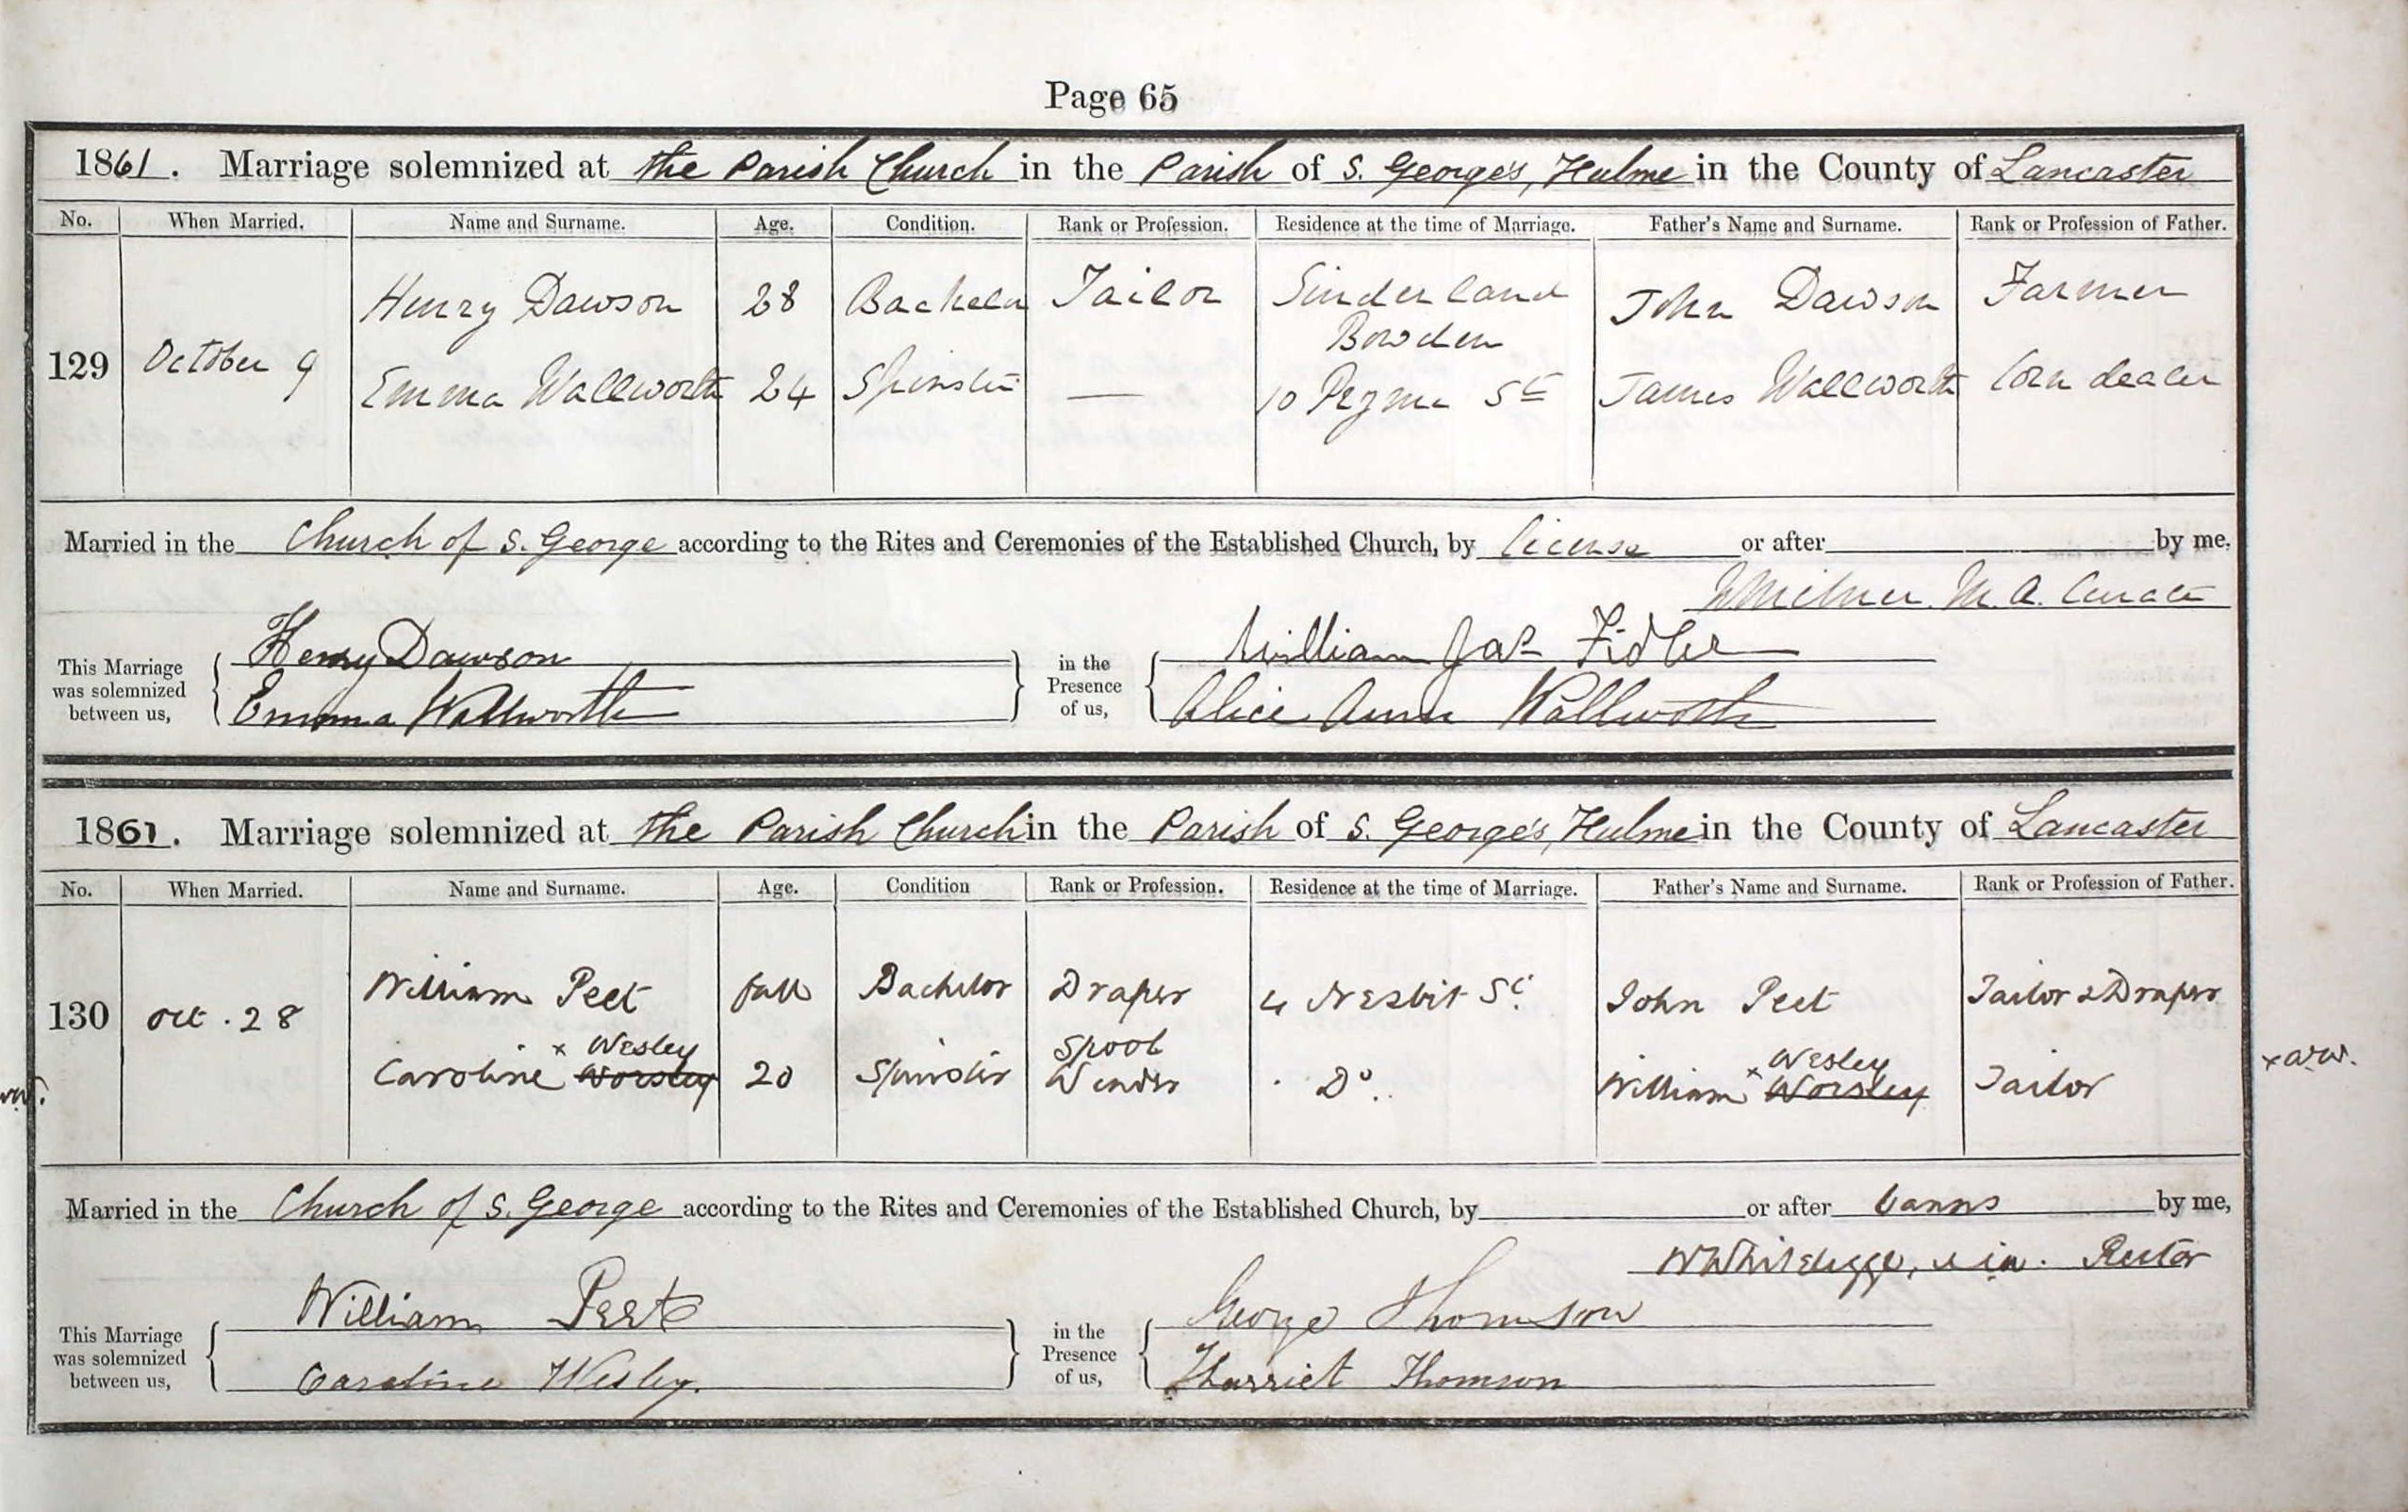 Page 65
1861. Marriage solemnized at the Parish Church in the Parish of S. George's, Hulme in the County of Lancaster
No. When Married. Name and Surname. Age. Condition. Rank or Profession. Residence at the time of Marriage. Father's Name and Surname. Rank or Profession of Father.
Henry Dawson 28 Bachelor Tailor Sinderland John Dawson Farmer
Bowden
129 October 9 Emma Wallworth 24 Spinster — 10 St James Wallworth Corn dealer
Married in the Church of S. George according to the Rites and Ceremonies of the Established Church, by license or after by me,
W Milner. M.A. Curate
This Marriage was solemnized between us, Henry Dawson in the Presence of us, William Jas Fidler
Emma Wallworth Alice Ann Wallworth
1861. Marriage solemnized at the Parish Church in the Parish of S. George's, Hulme in the County of Lancaster
No. When Married. Name and Surname. Age. Condition Rank or Profession. Residence at the time of Marriage. Father's Name and Surname. Rank or Profession of Father.
130 Oct. 28 William Peet full Bachelor Draper 4 Nesbit St. John Peet Tailor & Draper
x Wesley Spool x Wesley
Caroline Worsley 20 Spinster Winder Do. William Worsley Tailor
Married in the Church of S. George according to the Rites and Ceremonies of the Established Church, by or after banns by me,
Rector
This Marriage was solemnized between us, William Peet in the Presence of us, George Thomson
Caroline Wesley. Harriet Thomson